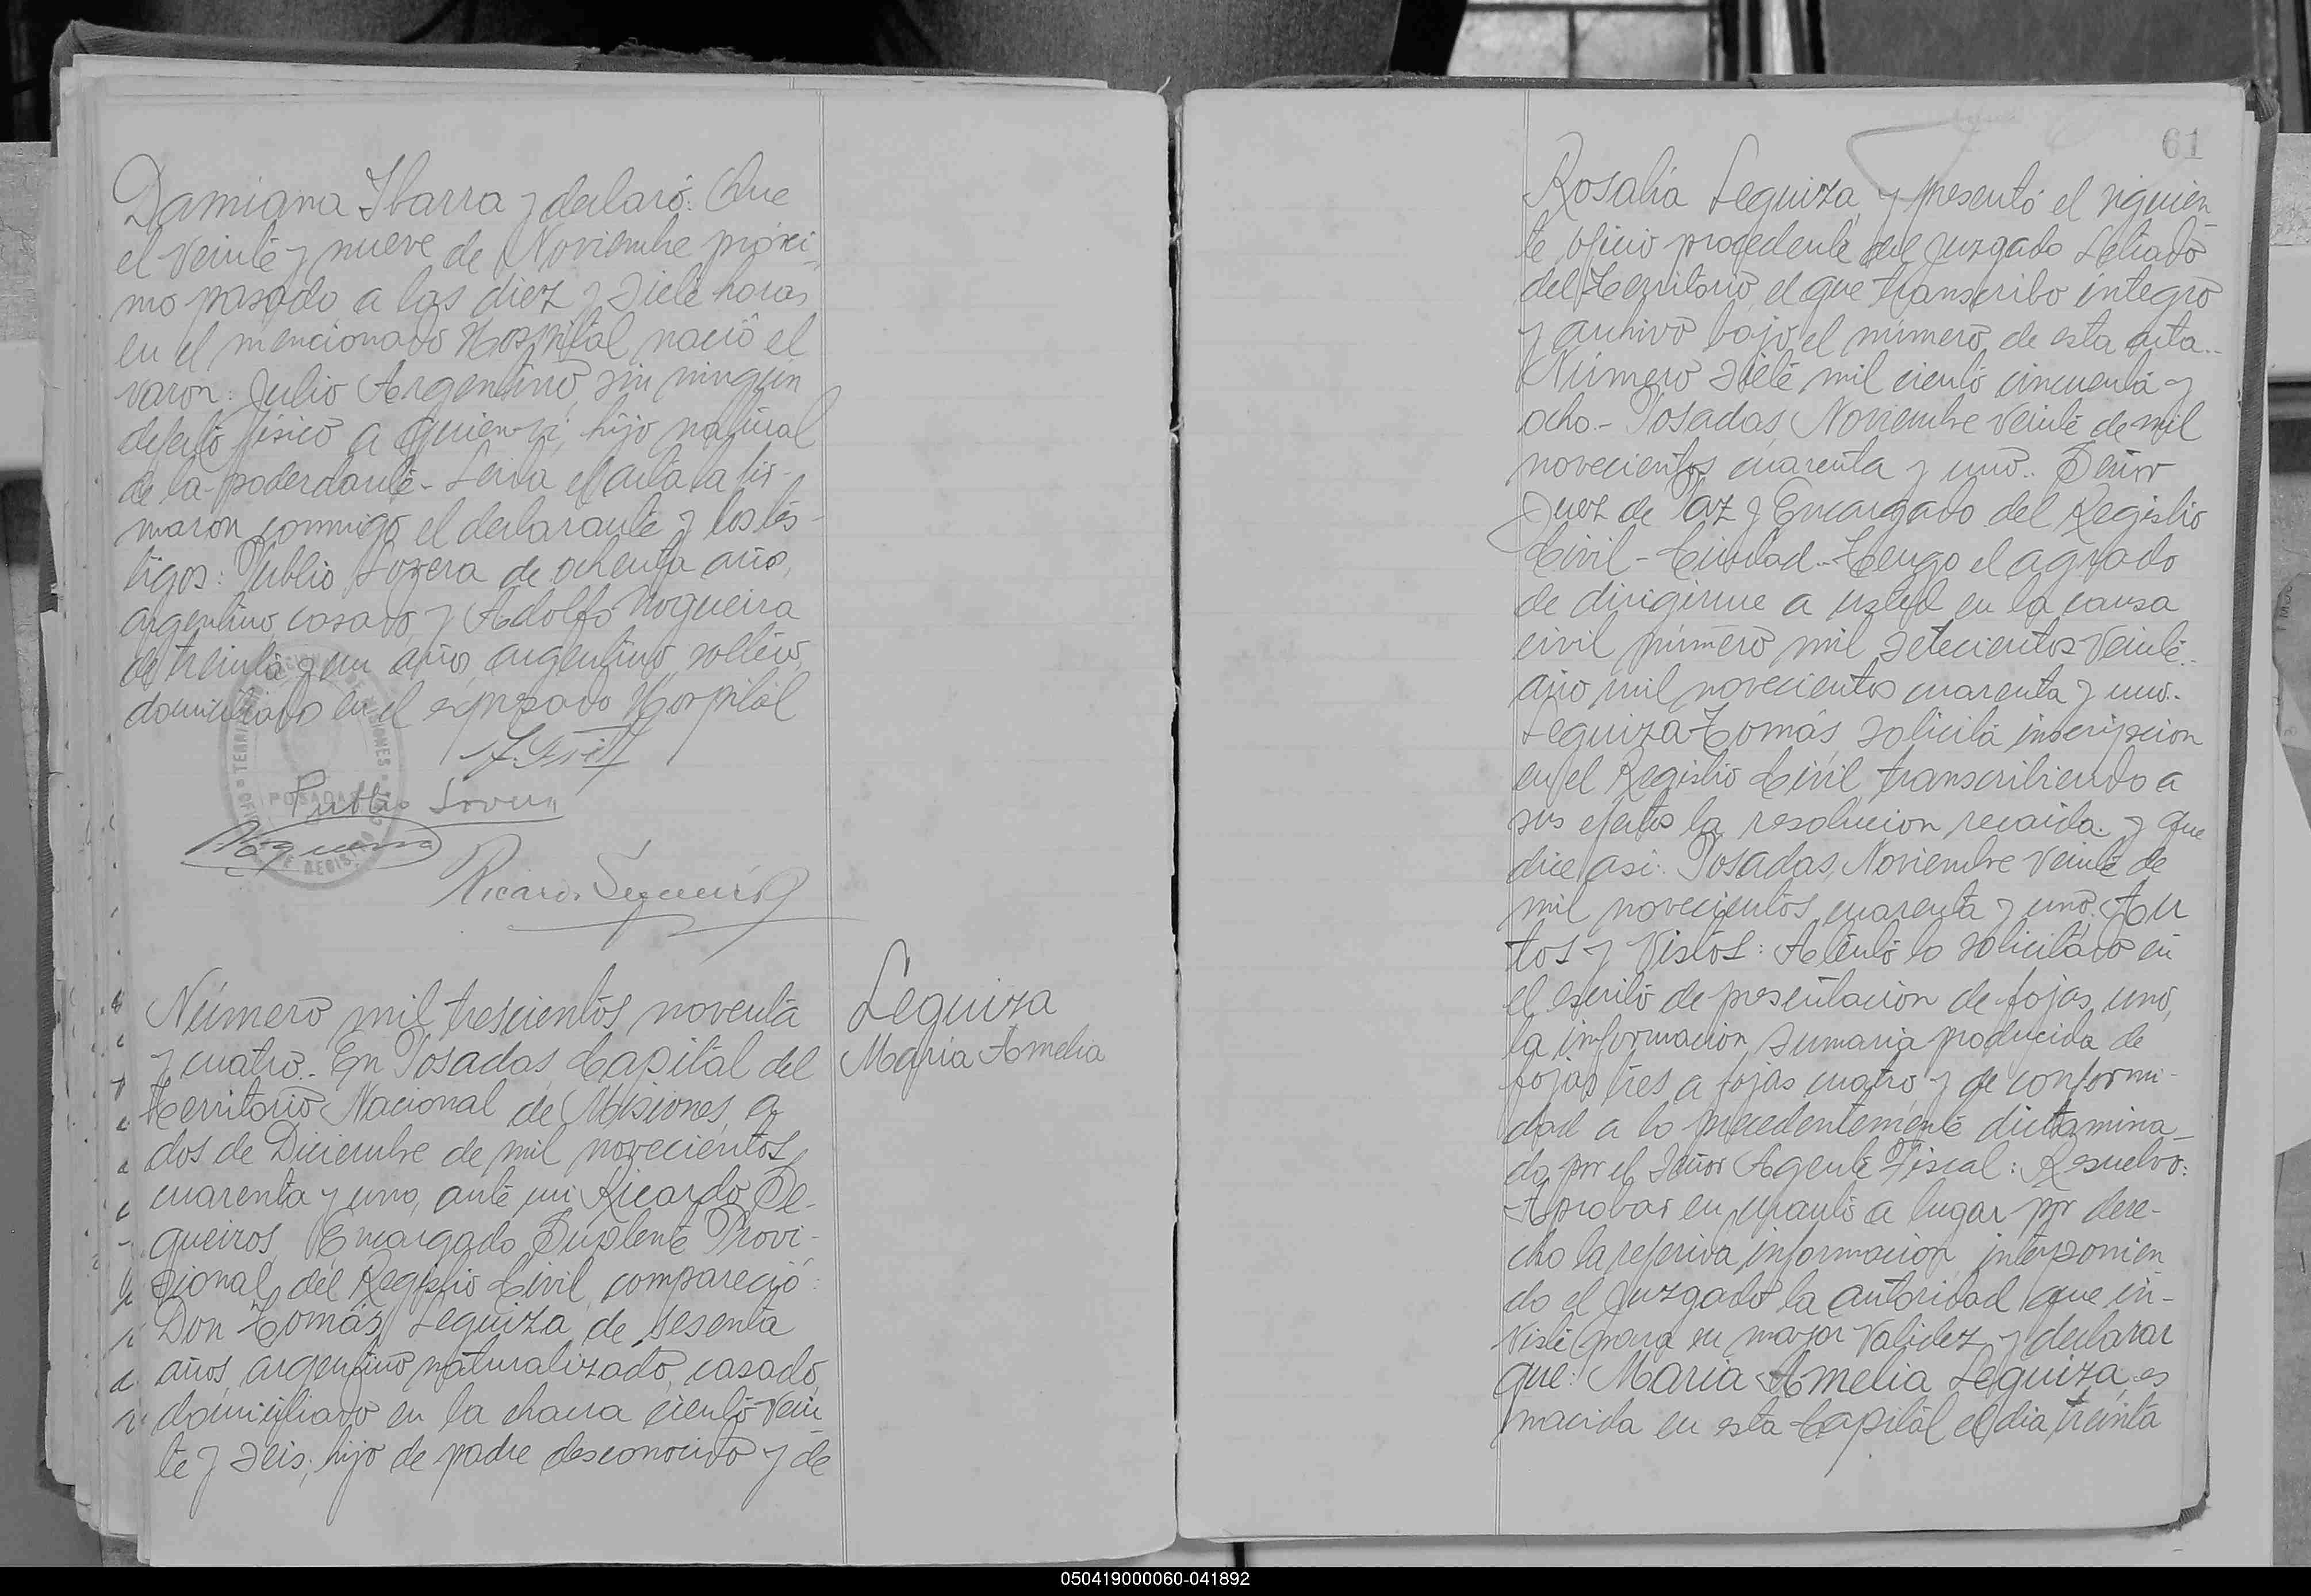 Damiana Ibarra y declaró: Que
el veinte y nueve de Noviembre próxi-
mo pasado a las diez y siete horas
en el mencionado Hospital nació el
varon: Julio Argentino, sin ningun
defecto físico a quien vi, hijo natural
de la poderdante - Leida el acta la fir-
maron conmigo el declarante y los tes-
tigos: Publio Lovera de ochenta años,
argentino, casado, y Adolfo Nogueira
de treinta y un años, argentino, soltero,
domiciliado en el expresado Hospital
Publio Lovera
Nogueira
Ricardo Sequeiros
TERRI MISIONES
POSADAS
DE REGIS
Leguiza
María Amelia
Número mil trescientos noventa
y cuatro.- En Posadas, Capital del
Territorio Nacional de Misiones, a
dos de Diciembre de mil novecientos
cuarenta y uno, ante mi Ricardo Se-
queiros, Encargado Suplente Provi-
sional del Registro Civil, compareció:
Don Tomás Leguiza, de sesenta
años, argentino naturalizado, casado,
domiciliado en la chacra ciento vein
te y seis, hijo de padre desconocido y de
61
Rosalía Leguiza, y presentó el siguien-
te oficio procedente del Juzgado Letrado
del Territorio, el que transcribo integro
y archivo bajo el número de esta acta..
Número siete mil ciento cincuenta y
ocho.- Posadas, Noviembre veinte de mil
novecientos cuarenta y uno.. Señor
Juez de Paz y Encargado del Registro
Civil - Ciudad.- Tengo el agrado
de dirigirme a usted en la causa
civil número mil setecientos veinte..
año mil novecientos cuarenta y uno.
Leguiza Tomás, solicita inscripcion
en el Registro Civil transcribiendo a
sus efectos la resolucion recaida. y que
dice asi: Posadas, Noviembre veinte de
mil novecientos cuarenta y uno. Au
tos y Vistos: Atento lo solicitado en
el escrito de presentacion de fojas, uno,
la informacion sumaria producida de
fojas tres a fojas cuatro y de conformi-
dad a lo precedentemente dictamina-
do por el Señor Agente Fiscal: Resuelvo:
Aprobar en cuanto a lugar por dere-
cho la referida informacion interponien
do el Juzgado la autoridad que in-
viste para su mayor validez y declarar
que: María Amelia Leguiza, es
nacida en esta Capital el dia treinta
050419000060-041892